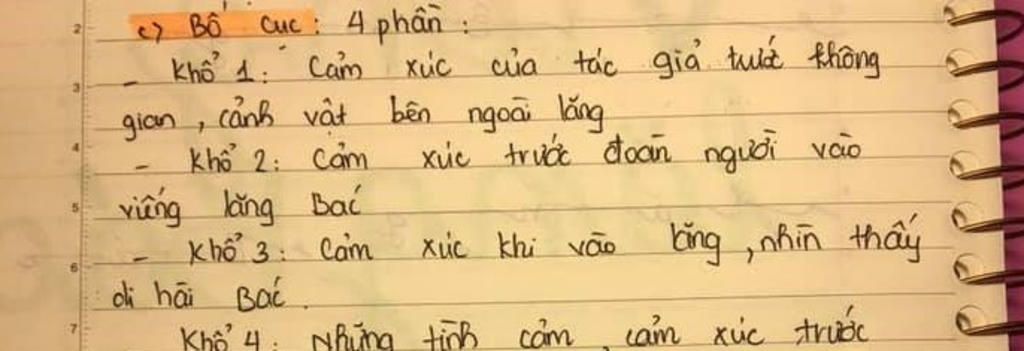 c) Bố cục : 4 phần :
- Khổ 1 : Cảm xúc của tác giả trước không
gian , cảnh vật bên ngoài lăng
- Khổ 2 : Cảm xúc trước đoàn người vào
viếng lăng Bác
- Khổ 3 : Cảm xúc khi vào lăng , nhìn thấy
di hài Bác .
Khổ 4 : Những tình cảm , cảm xúc trước